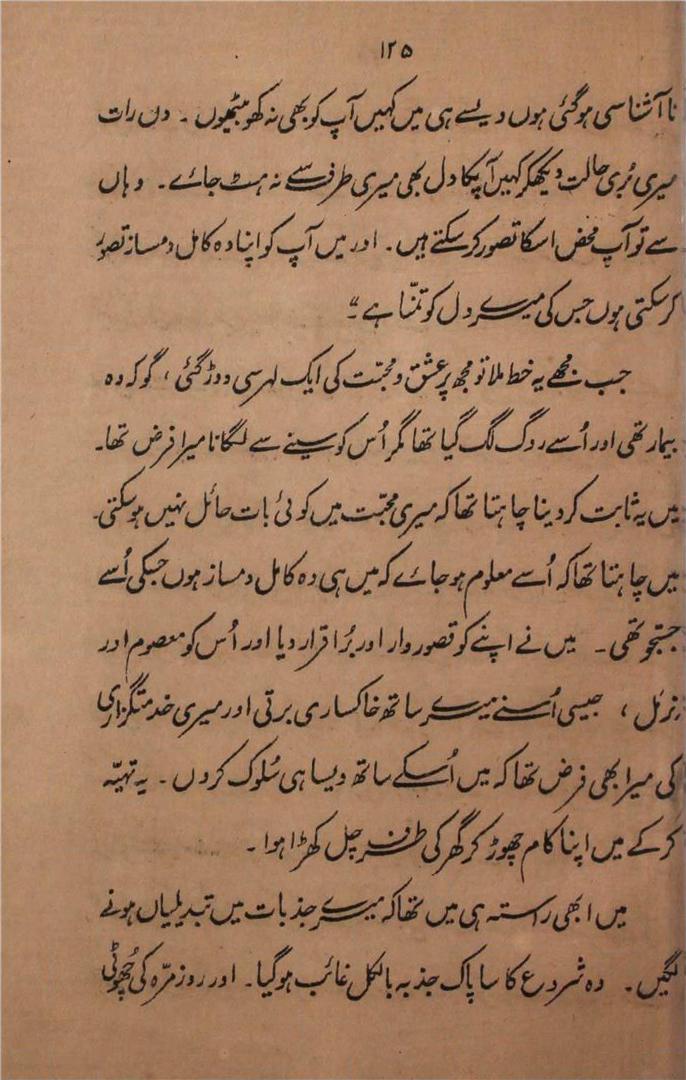 ۱۲۵
نا آشنا سی ہوگئی ہوں ویسے ہی میں کہیں آپ کو بھی نہ کھو بیٹھوں ۔ دن رات
میری بُری حالت دیکھکر کہیں آپکا دل بھی میری طرف سے نہ ہٹ جائے ۔ وہاں
سے تو آپ محض اسکا تصور کر سکتے ہیں ۔ اور میں آپ کو اپنا وہ کامل دمساز تصور
کر سکتی ہوں جس کی میرے دل کو تمنّا ہے ۔“
جب مجھے یہ خط ملا تو مجھ پر عشق و محبّت کی ایک لہر سی دوڑ گئی ، گو کہ وہ
بیمار تھی اور اُسے روگ لگ گیا تھا مگر اُس کو سینے سے لگانا میرا فرض تھا ۔
میں یہ ثابت کر دینا چاہتا تھا کہ میری محبّت میں کوئی بات حائل نہیں ہو سکتی ۔
میں چاہتا تھا کہ اُسے معلوم ہو جائے کہ میں ہی وہ کامل دمساز ہوں جسکی اُسے
جستجو تھی ۔ میں نے اپنے کو قصوروار اور بُرا قرار دیا اور اُس کو معصوم اور
نِرمَل ، جیسی اُسنے میرے ساتھ خاکساری برتی اور میری خدمتگزاری
کی میرا بھی فرض تھا کہ میں اُسکے ساتھ ویسا ہی سُلوک کروں ۔ یہ تہیّہ
کر کے میں اپنا کام چھوڑ کر گھر کی طرف چل کھڑا ہوا ۔
میں ابھی راستہ ہی میں تھا کہ میرے جذبات میں تبدیلیاں ہونے
لگیں ۔ وہ شروع کا سا پاک جذبہ بالکل غائب ہو گیا ۔ اور روزمرّہ کی چُھوٹی